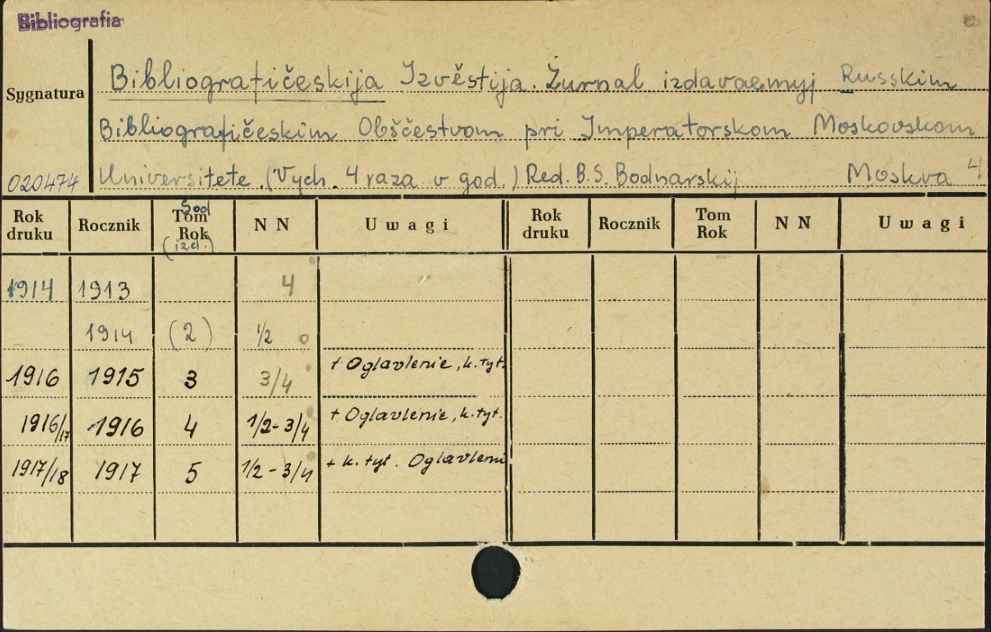 Bibliografia
Bibliografičeskija Izvěstija. Žurnal izdavaemyj Russkim
Sygnatura
Bibliografičeskim Obščestvom pri Imperatorskom Moskovskom
020474 Universitete. (Vych. 4 raza v god.) Red. B.S. Bodnarskij Moskva 4°
Rok druku Rocznik God Tom Rok (izd.) N N Uwagi Rok druku Rocznik Tom Rok N N Uwagi
1914 1913 4
1914 (2) 1/2
1916 1915 3 3/4 + Oglavlenie, k. tyt.
1916/17 1916 4 1/2-3/4 + Oglavlenie, k. tyt.
1917/18 1917 5 1/2-3/4 + k. tyt. Oglavleni